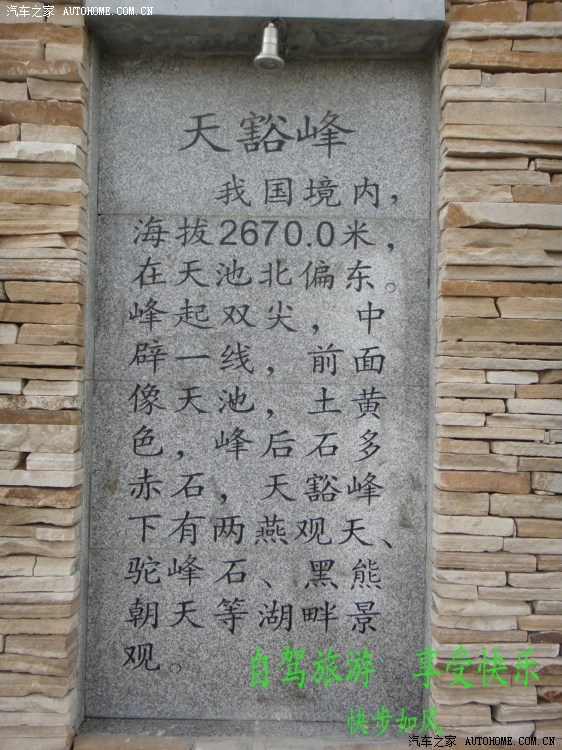 汽车之家 AUTOHOME.COM.CN
天豁峰
我国境内，
海拔2670.0米，
在天池北偏东。
峰起双尖，中
辟一线，前面
像天池，土黄
色，峰后石多
赤石，天豁峰
下有两燕观天、
驼峰石、黑熊
朝天等湖畔景
观。
自驾旅游 享受快乐
快步如风
汽车之家 AUTOHOME.COM.CN